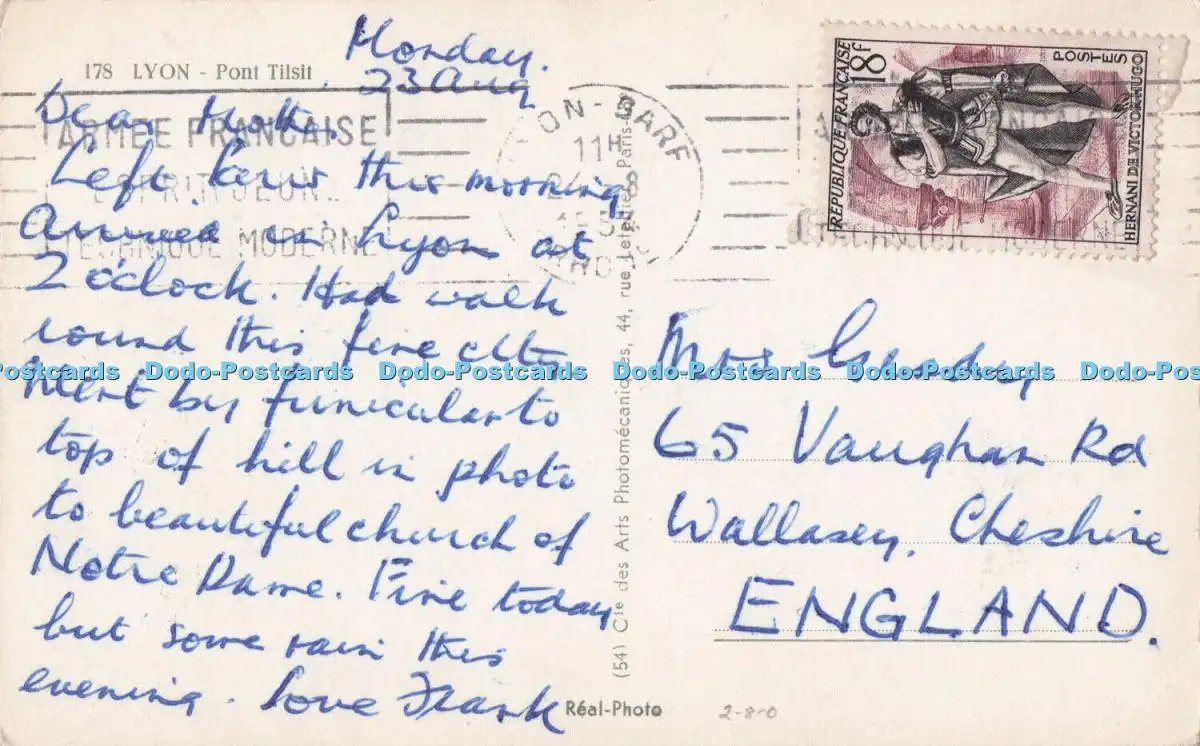 178 LYON - Pont Tilsit
Monday.
23 Aug
Dear Mother,
Left this morning
Arrived in Lyon at
2 o'clock. Had walk
round this fine city
Went by funicular to
top of hill in photo
to beautiful church of
Notre Dame. Fine today
but some rain this
evening. Love Frank
ARMÉE FRANÇAISE
TECHNIQUE MODERNE
ON - GARE
11H
RHONE
RÉPUBLIQUE FRANÇAISE
18f
POSTES
HERNANI DE VICTOR HUGO
(54) Cie des Arts Photomécaniques, 44, rue Letellier, Paris-
Mrs
65 Vaughan Rd
Wallasey, Cheshire
ENGLAND.
Réal-Photo
2-8-0
Dodo-Postcards Dodo-Postcards Dodo-Postcards Dodo-Postcards Dodo-Postcards Dodo-Pos